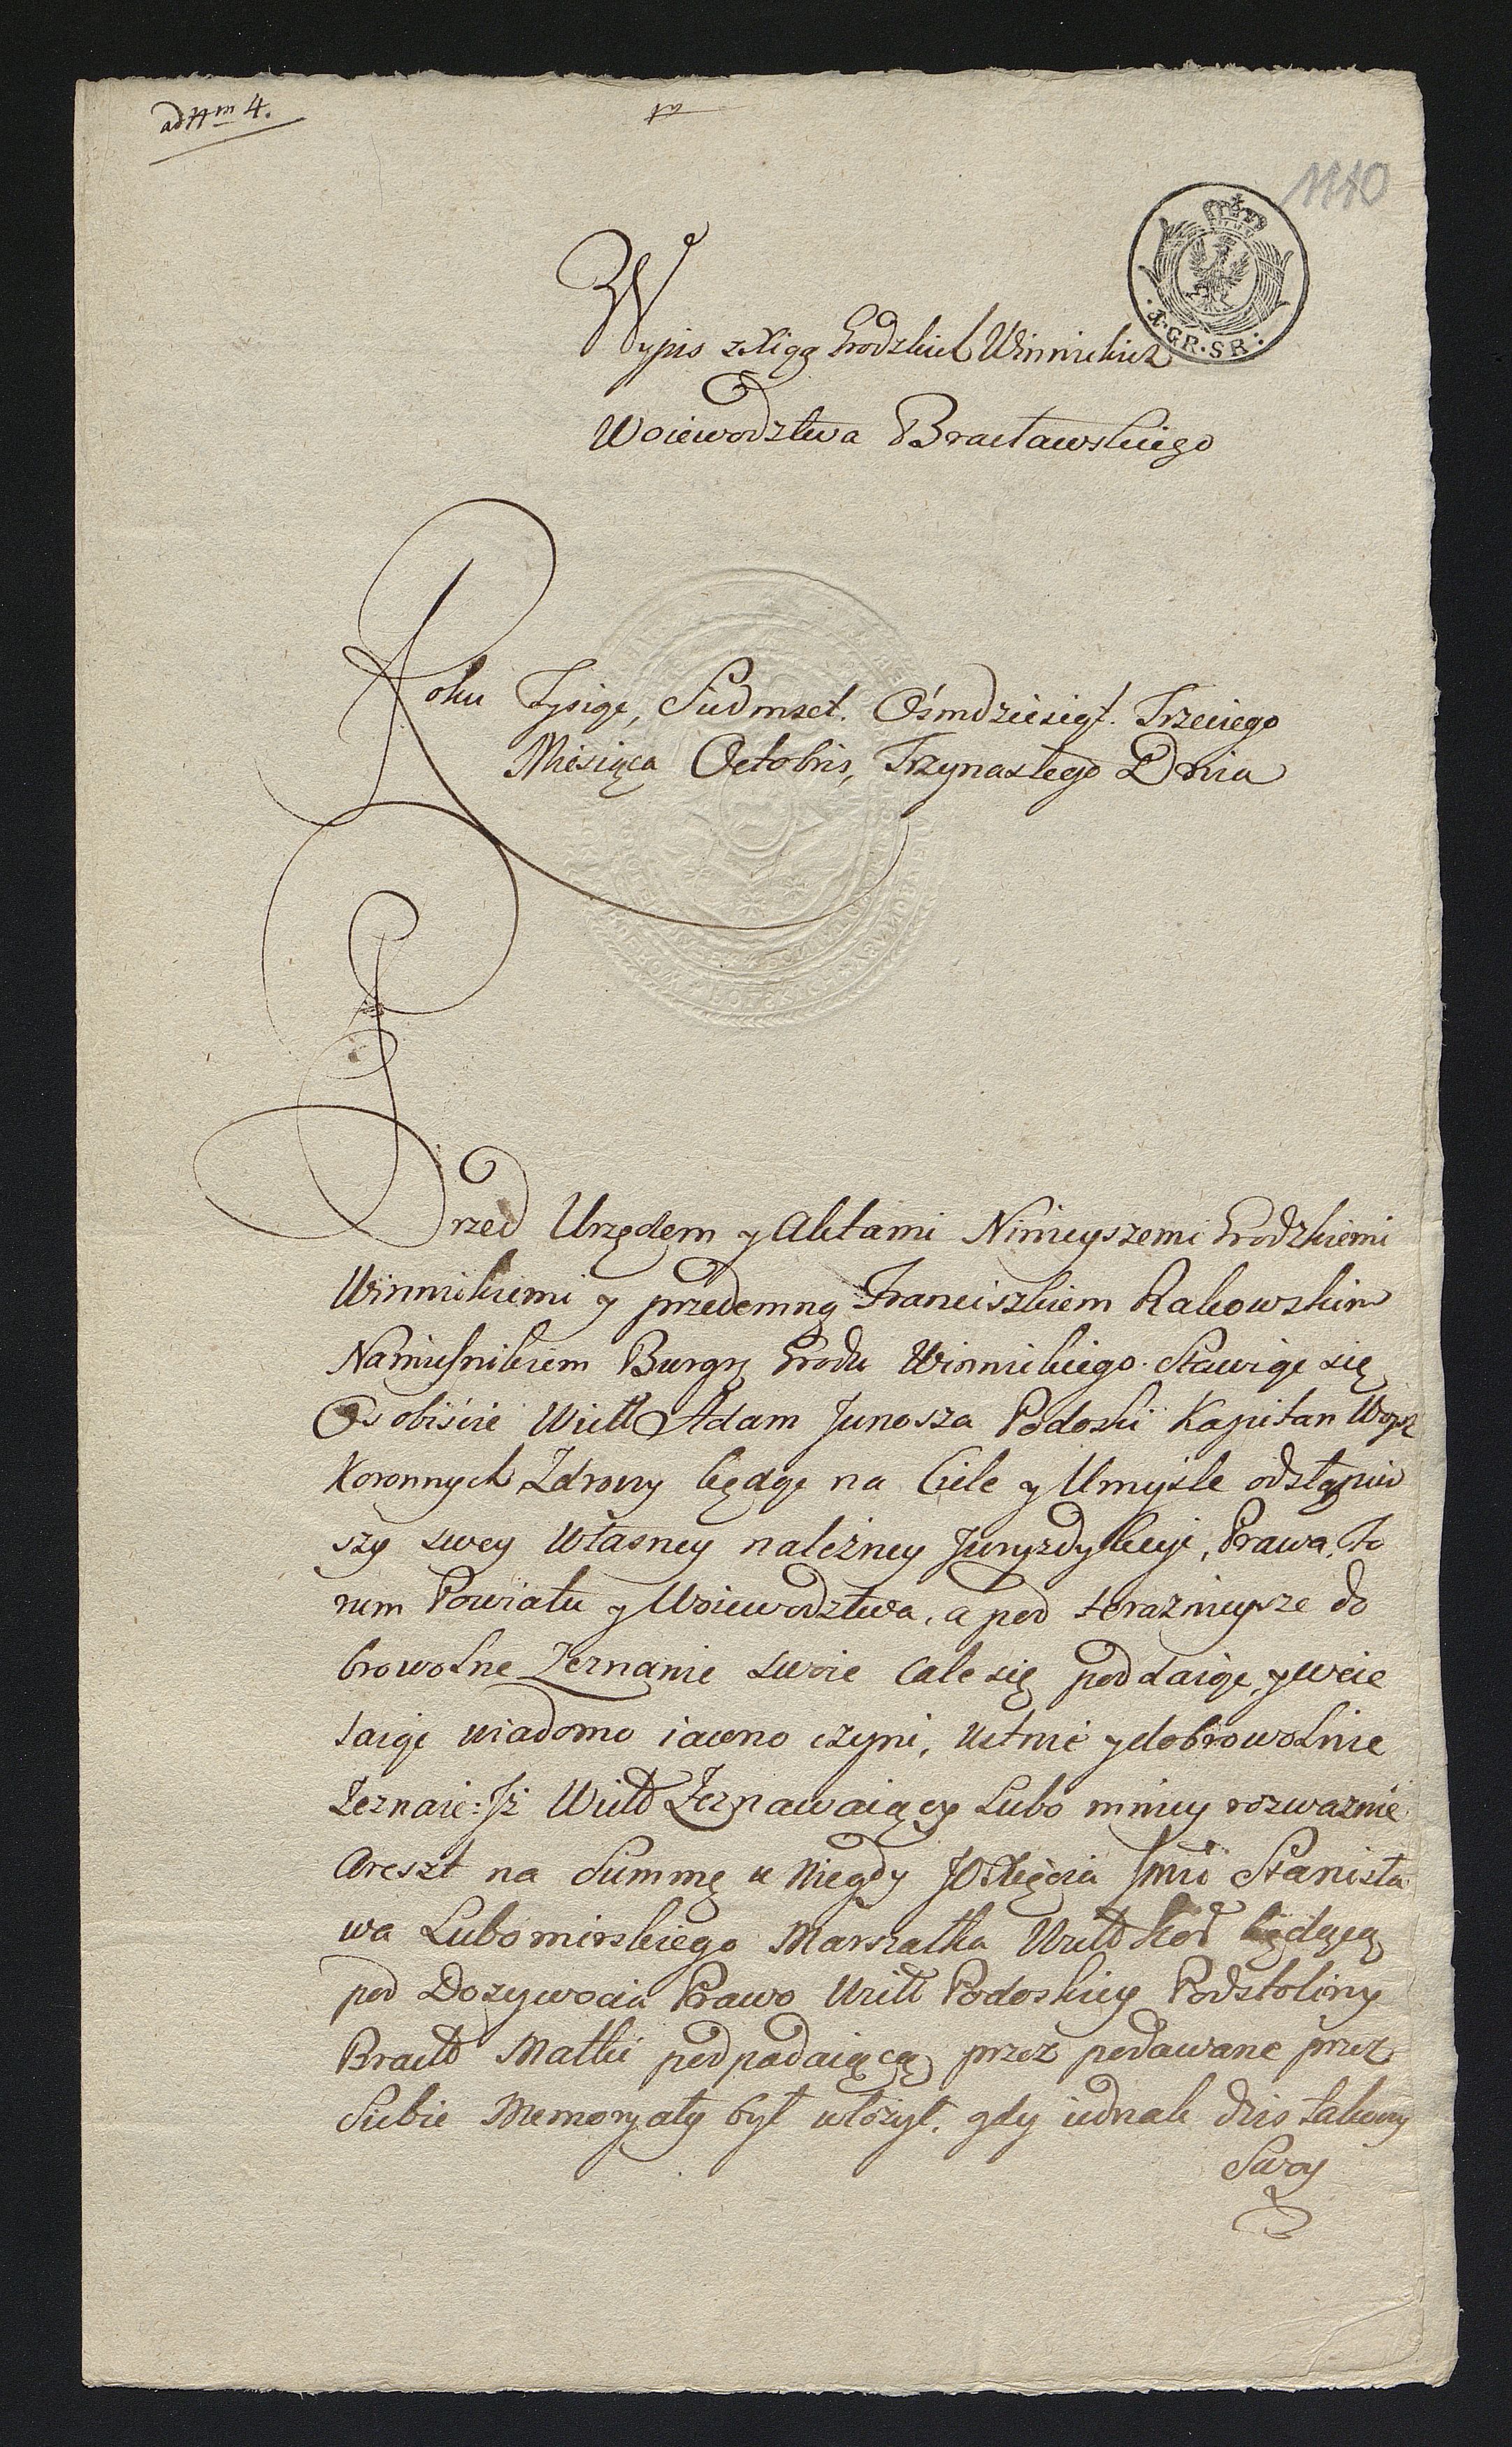 ad Nm 4.
1140
X·GR·SR:
Wypis z Xiąg Grodzkich Winnickich
Woiewodztwa Bracławskiego
Roku Tysiąc, Siedmset. Ośmdziesiąt. Trzeciego
Miesiąca Octobris, Trzynastego Dnia
Przed Urzędem y Aktami Ninieyszemi Grodzkiemi
Winnickiemi y przedemną Franciszkiem Rakowskim
Namiesnikiem Burgrę Grodu Winnickiego. Stawiąc się
Osobiście Wielł Adam Junosza Podoski Kapitan Woysk
Koronnych Zdrowy będąc na Ciele y Umyśle odstąpiw
szy swey własney należney Juryzdykcyi, Prawa, Fo
rum Powiatu y Woiewodztwa, a pod teraznieysze do
browolne Zeznanie swoie cale się poddaiąc, y wcie
laiąc wiadomo iawno czyni, ustnie y dobrowolnie
Zeznaie: Iż Wielł Zeznawaiący Lubo mniey rozwaznie
Areszt na Summę u Niegdy JO Xięcia Jmci Stanisła
wa Lubomirskiego Marszałka Wielł Kor będącą
pod Dozywocia Prawo Wielł Podoskiey Podstoliny
Bracłł Matki podpadaiącą przez podawane przez
Siebie Memoryały był włożył, gdy iednak dzis takowy
Swoy